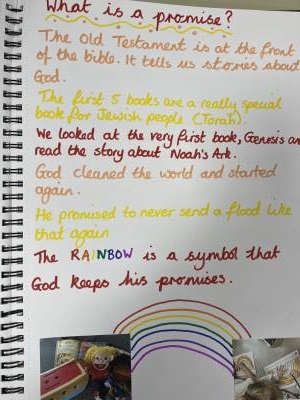 What is a promise?
The Old Testament is at the front
of the bible. It tells us stories about
God.
The first 5 books are a really special
book for Jewish people (Torah).
We looked at the very first book, Genesis an
read the story about Noah's Ark.
God cleaned the world and started
again.
He promised to never send a flood like
that again
The RAINBOW is a symbol that
God keeps his promises.